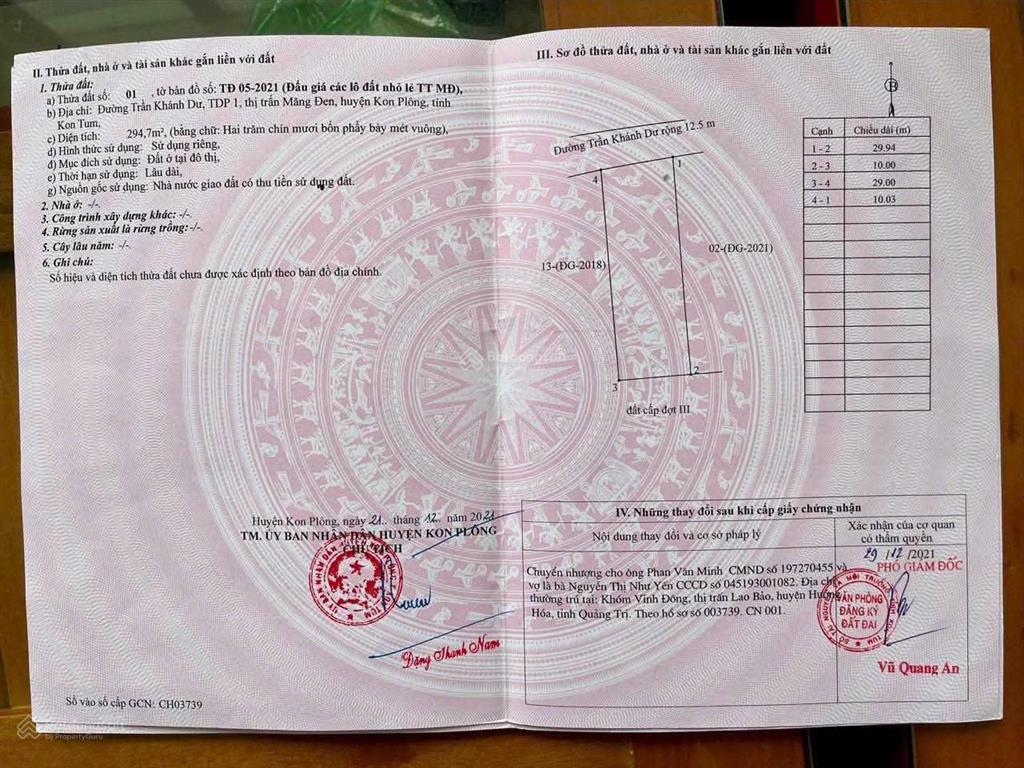 II. Thửa đất, nhà ở và tài sản khác gắn liền với đất
1. Thửa đất:
a) Thửa đất số: 01 , tờ bản đồ số: TĐ 05-2021 (Đấu giá các lô đất nhỏ lẻ TT MĐ),
b) Địa chỉ: Đường Trần Khánh Dư, TDP 1, thị trấn Măng Đen, huyện Kon Plông, tỉnh
Kon Tum,
c) Diện tích: 294,7m², (bằng chữ: Hai trăm chín mươi bốn phẩy bảy mét vuông),
d) Hình thức sử dụng: Sử dụng riêng,
đ) Mục đích sử dụng: Đất ở tại đô thị,
e) Thời hạn sử dụng: Lâu dài,
g) Nguồn gốc sử dụng: Nhà nước giao đất có thu tiền sử dụng đất.
2. Nhà ở: -/-.
3. Công trình xây dựng khác: -/-.
4. Rừng sản xuất là rừng trồng: -/-.
5. Cây lâu năm: -/-.
6. Ghi chú:
Số hiệu và diện tích thửa đất chưa được xác định theo bản đồ địa chính.
Huyện Kon Plông, ngày 21 tháng 12 năm 2021
TM. ỦY BAN NHÂN DÂN HUYỆN KON PLÔNG
CHỦ TỊCH
Đặng Thanh Nam
Số vào sổ cấp GCN: CH03739
III. Sơ đồ thửa đất, nhà ở và tài sản khác gắn liền với đất
B
Đường Trần Khánh Dư rộng 12.5 m
4
1
13-(ĐG-2018)
02-(ĐG-2021)
3
2
đất cấp đợt III
Cạnh Chiều dài (m)
1 - 2 29.94
2 - 3 10.00
3 - 4 29.00
4 - 1 10.03
IV. Những thay đổi sau khi cấp giấy chứng nhận
Nội dung thay đổi và cơ sở pháp lý
Xác nhận của cơ quan
có thẩm quyền
Chuyển nhượng cho ông Phan Văn Minh CMND số 197270455 và
vợ là bà Nguyễn Thị Như Yến CCCD số 045193001082. Địa chỉ
thường trú tại: Khóm Vĩnh Đông, thị trấn Lao Bảo, huyện Hướng
Hóa, tỉnh Quảng Trị. Theo hồ sơ số 003739. CN 001.
29/12/2021
PHÓ GIÁM ĐỐC
VĂN PHÒNG
ĐĂNG KÝ
ĐẤT ĐAI
Vũ Quang An
by PropertyGuru